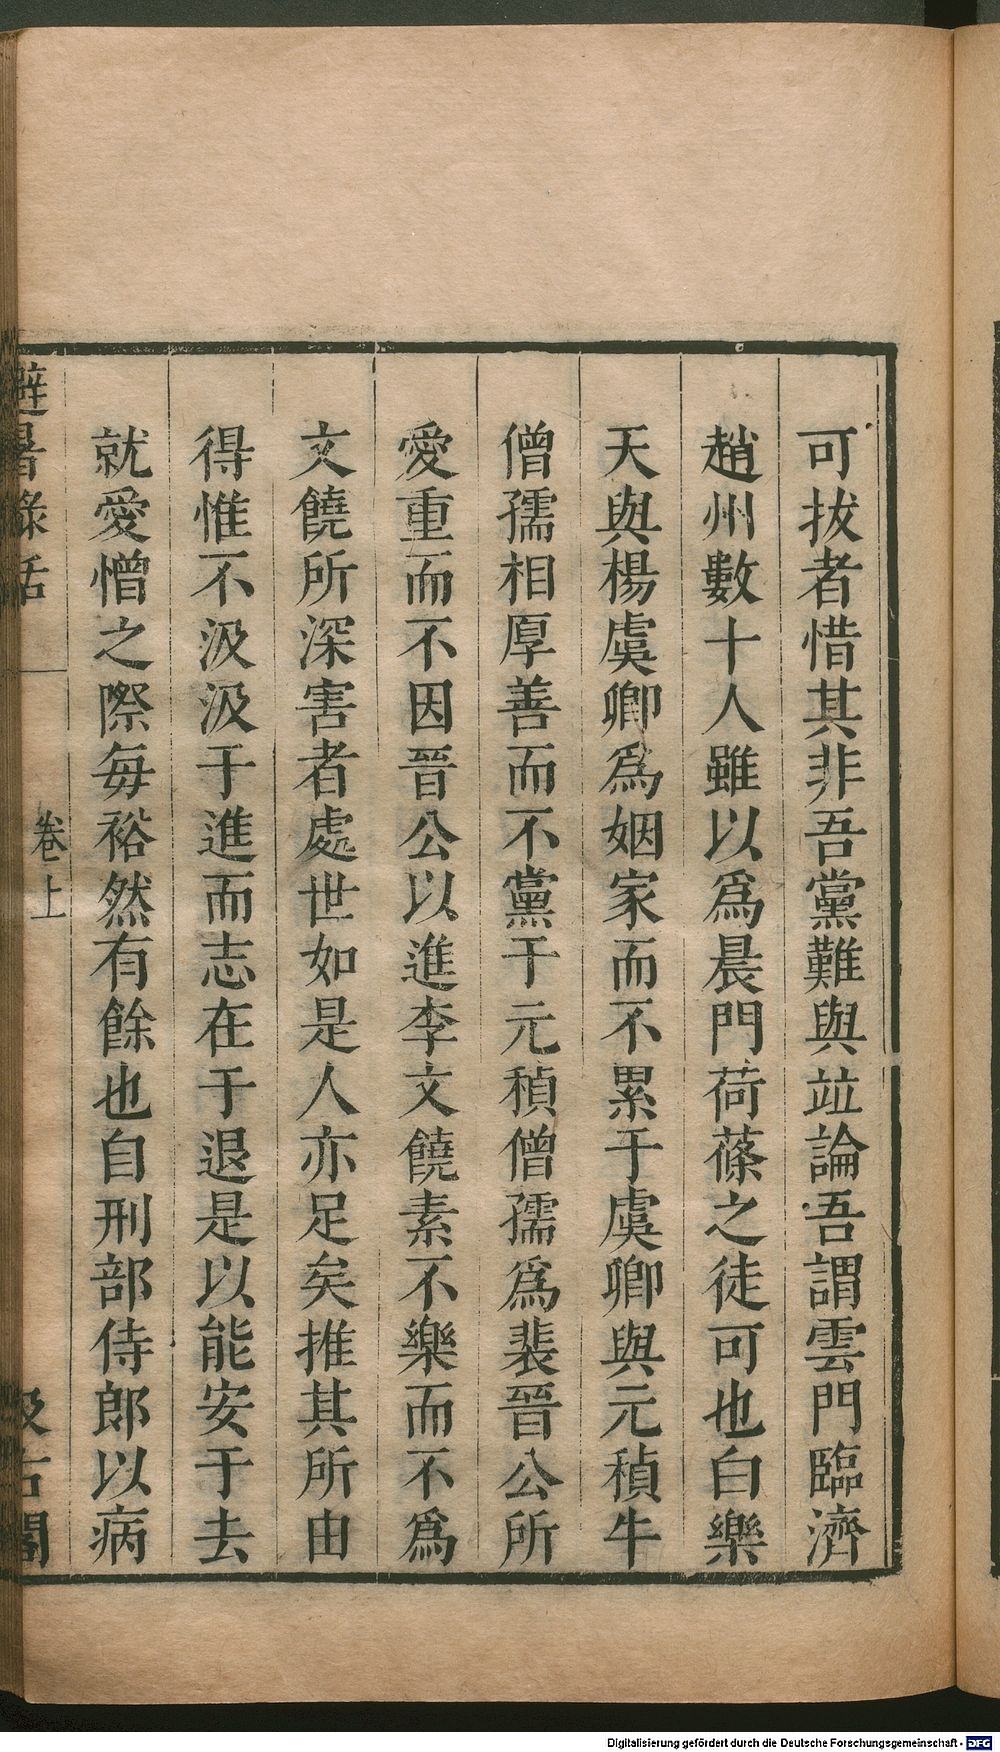 可拔者惜其非吾黨難與竝論吾謂雲門臨濟
趙州數十人雖以爲晨門荷蓧之徒可也白樂
天與楊虞卿爲姻家而不累于虞卿與元稹牛
僧孺相厚善而不黨于元稹僧孺爲裴晉公所
愛重而不因晉公以進李文饒素不樂而不爲
文饒所深害者處世如是人亦足矣推其所由
得惟不汲汲于進而志在于退是以能安于去
就愛憎之際每裕然有餘也自刑部侍郎以病
避暑錄話
卷上
汲古閣
Digitalisierung gefördert durch die Deutsche Forschungsgemeinschaft - DFG